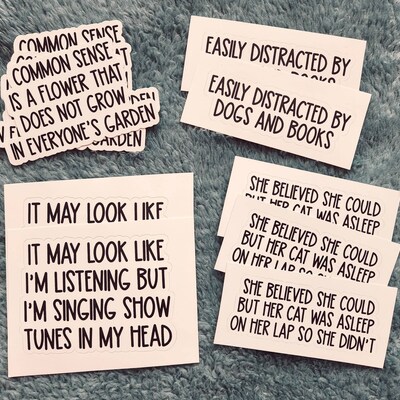 COMMON SENSE
COMMON SENSE
IS A FLOWER THAT
DOES NOT GROW
IN EVERYONE'S GARDEN
EASILY DISTRACTED BY
AND BOOKS
EASILY DISTRACTED BY
DOGS AND BOOKS
IT MAY LOOK LIKE
IT MAY LOOK LIKE
I'M LISTENING BUT
I'M SINGING SHOW
TUNES IN MY HEAD
SHE BELIEVED SHE COULD
BUT HER CAT WAS ASLEEP
SHE BELIEVED SHE COULD
BUT HER CAT WAS ASLEEP
ON HER LAP SO
SHE BELIEVED SHE COULD
BUT HER CAT WAS ASLEEP
ON HER LAP SO SHE DIDN'T